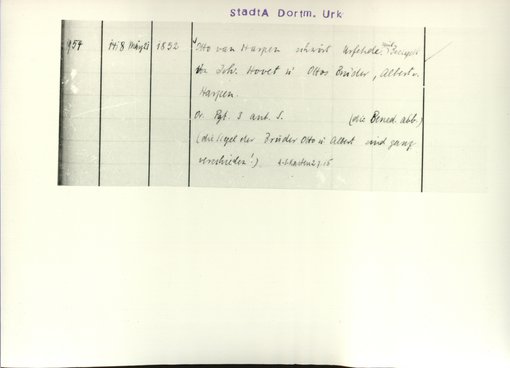 StadtA Dortm. Urk
954 1418 März 1 1832 Otto van Harpen schwört Urfehde.
Joh. Hovet u Ottos Brüder, Albert v.
Harpen.
Or. Pgt. 3 anh. S. (die Bened. abb.)
(die Siegel der Brüder Otto u Albert sind ganz
verschieden!)